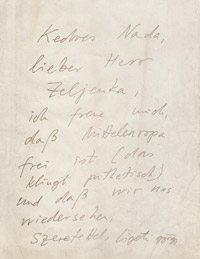 Kedves Nada,
lieber Herr
Zeljenka,
ich freue mich,
daß Mitteleuropa
frei ist (das
klingt pathetisch)
und daß wir uns
wiedersehen,
Szeretettel, Ligeti